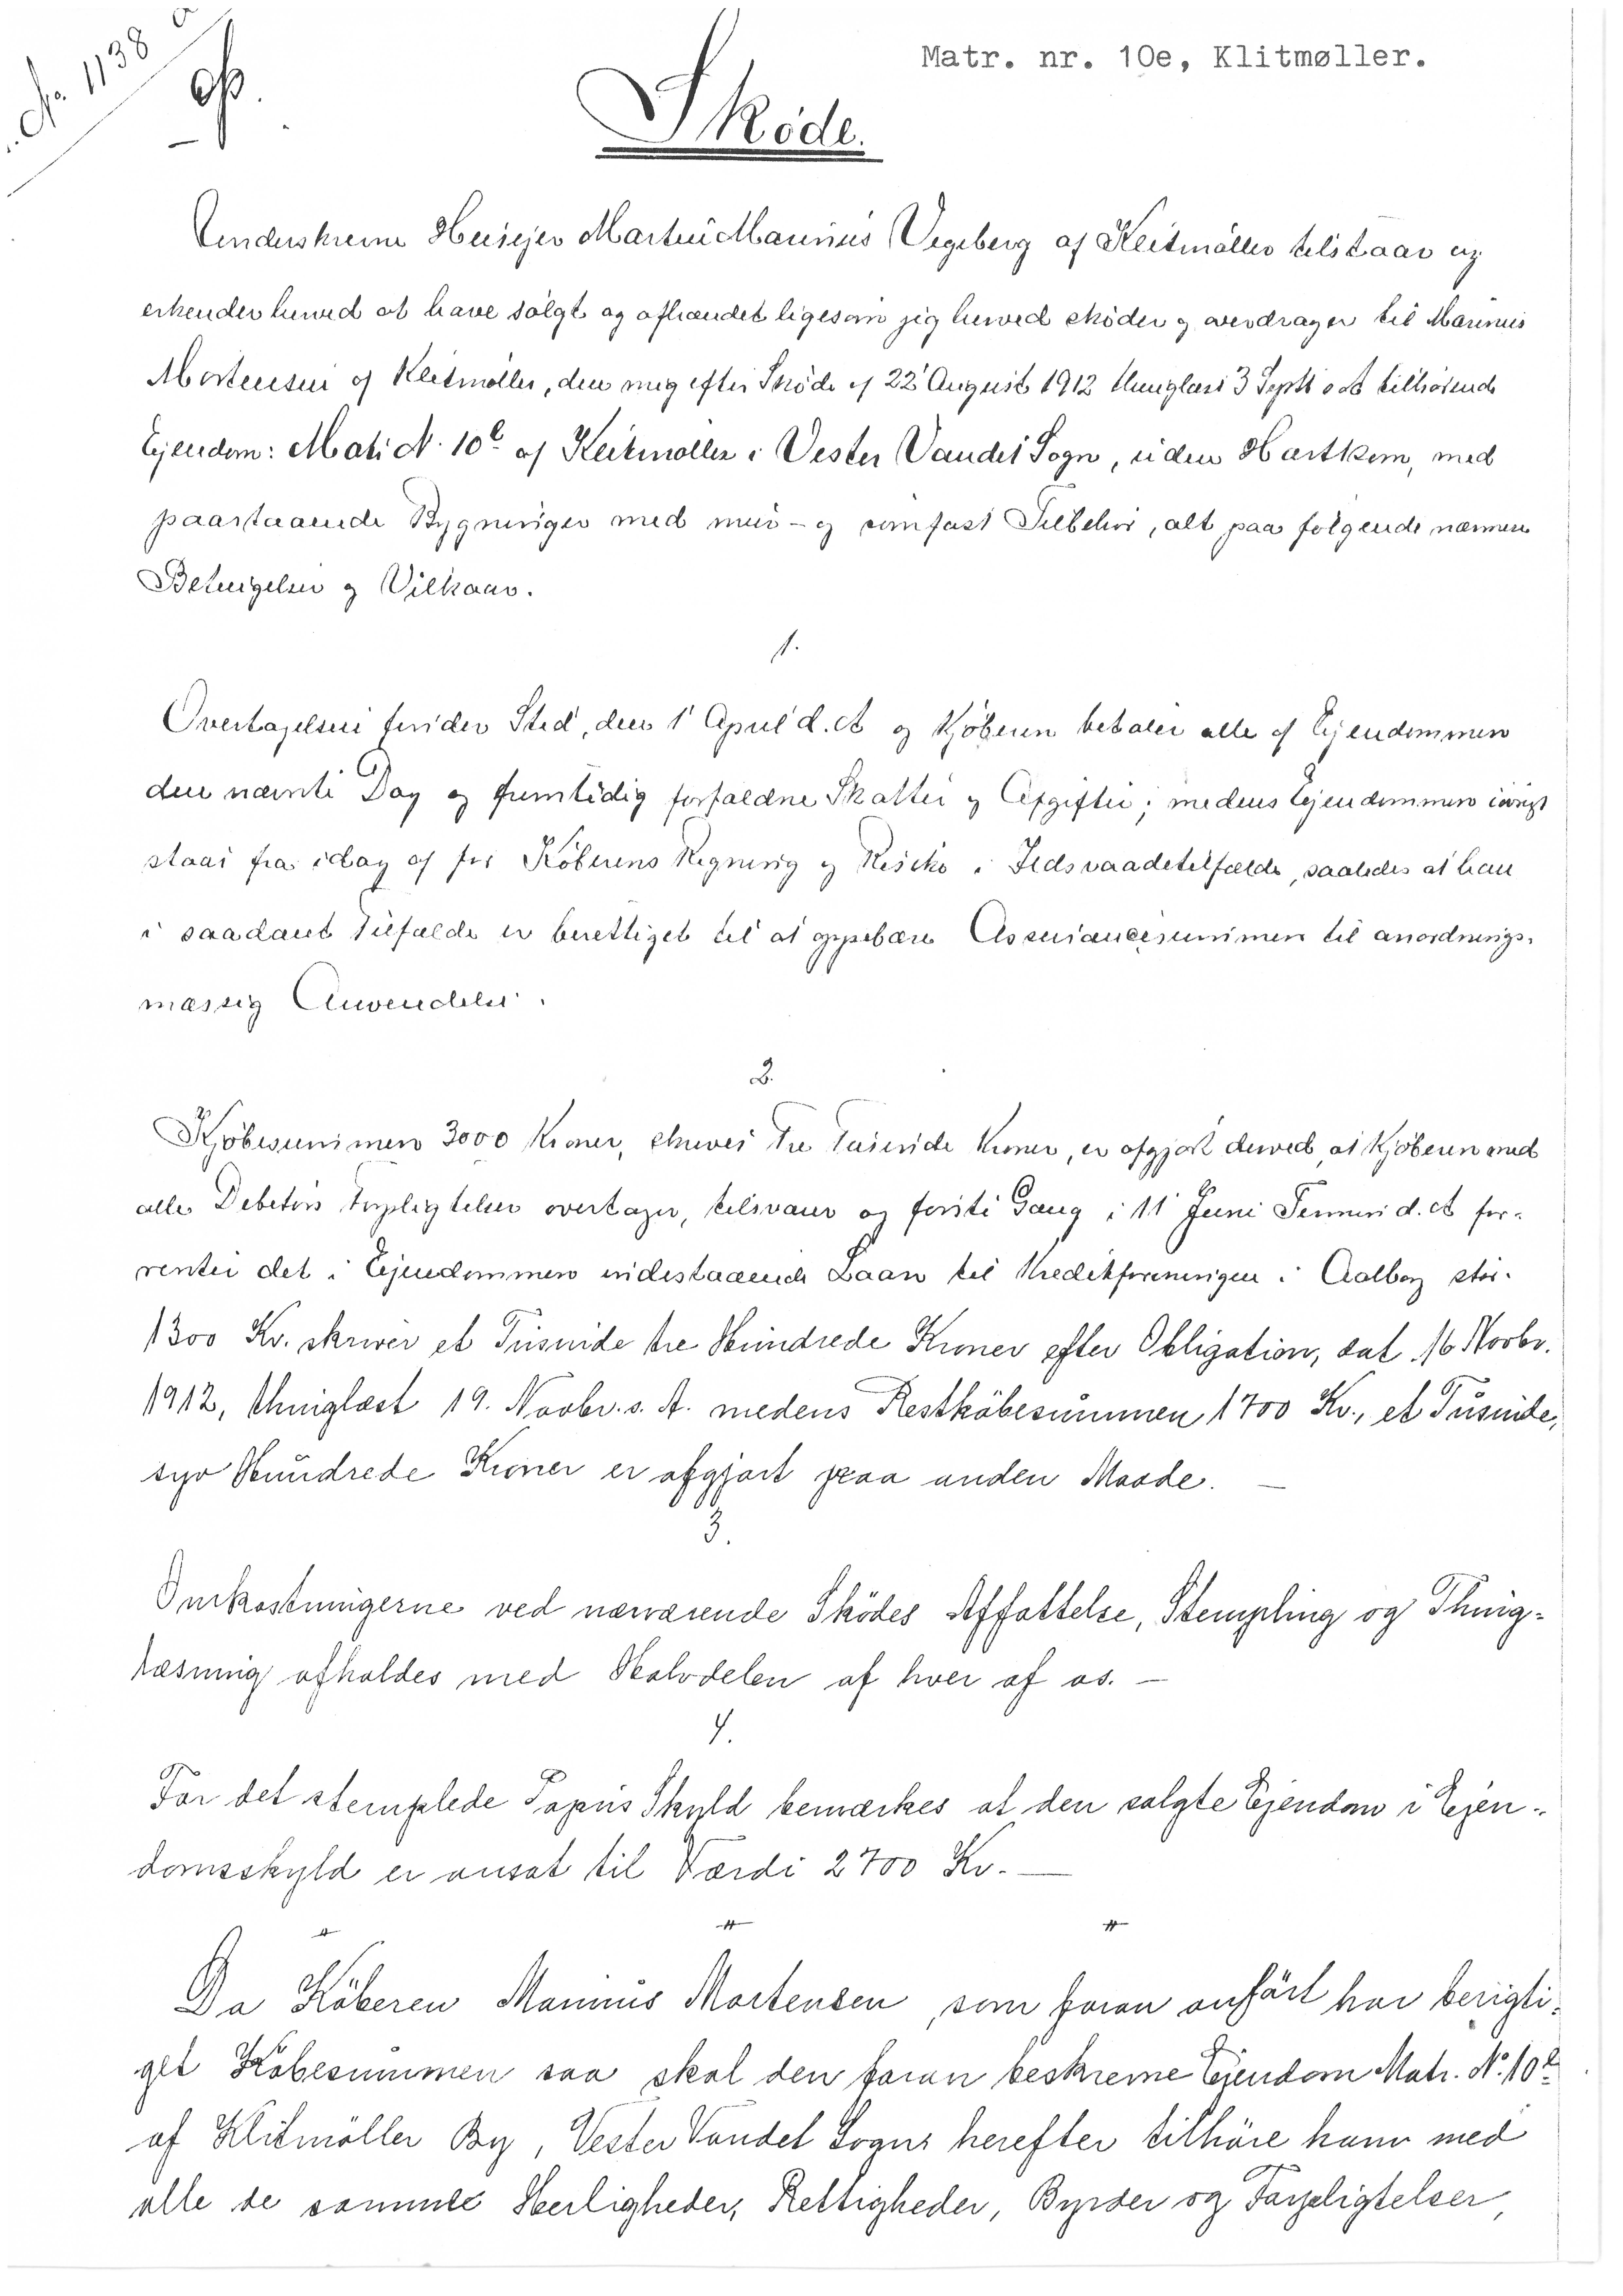 No. 1138
Matr. nr. 10e, Klitmøller.
Sköde.
Underskrevne Husejer Martin Marinus Vegeberg af Klitmöller tilstaar og
erkender herved at have solgt og afhændet ligesom jeg herved sköder og overdrager til Marinus
Mortensen af Klitmöller, den mig efter Sköde af 22' August 1912 thinglæst 3 Septb s A tilhörende
Ejendom: Matr N. 10e af Klitmöller i Vester Vandet Sogn, uden Hartkorn, med
paastaaende Bygninger med mur- og sömfast Tilbehör, alt paa fölgende nærmere
Betingelser og Vilkaar.
1.
Overtagelsen finder Sted, den 1' April d. A og Kjöberen betaler alle af Ejendommen
den nævnte Dag og fremtidig forfaldne Skatter og Afgifter; medens Ejendommen iövrigt
staar fra idag af for Köberens Regning og Risiko i Ildsvaadetilfælde, saaledes at han
i saadant Tilfælde er berettiget til at oppebære Assurancesummen til anordnings-
mæssig Anvendelse.
2.
Kjöbesummen 3000 Kroner, skriver Tre Tusinde Kroner, er afgjort derved at Kjöberen med
alle Debitors Forpligtelser overtager, tilsvarer og förste Gang i 11 Juni Termin d. A for-
renter det i Ejendommen indestaaende Laan til Kreditforeningen i Aalborg stor-
1300 Kr. skriver et Tusinde tre Hundrede Kroner efter Obligation, dat. 16 Novbr.
1912, thinglæst 19. Novbr. s. A. medens Restköbesummen 1700 Kr., et Tusinde,
syv Hundrede Kroner er afgjort paa anden Maade. —
3.
Omkostningerne ved nærværende Sködes Affattelse, Stempling og Thing-
læsning afholdes med Halvdelen af hver af os. —
4.
For det stemplede Papirs Skyld bemærkes at den solgte Ejendom i Ejen-
domsskyld er ansat til Værdi 2700 Kr. —
Da Köberen Marinus Mortensen, som foran anfört har berigti-
get Köbesummen saa skal den foran beskrevne Ejendom Matr. N. 10e
af Klitmöller By, Vester Vandet Sogns herefter tilhöre ham med
alle de samme Herligheder, Rettigheder, Byrder og Forpligtelser,